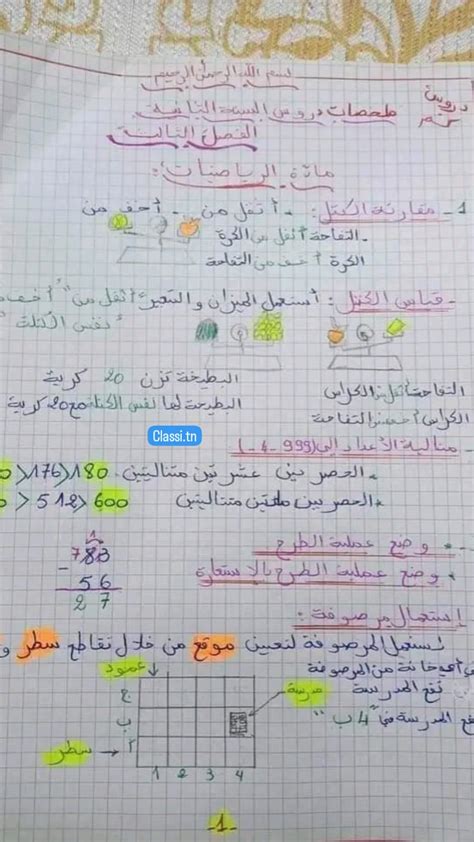 بسم الله الرحمان الرحيم
دروس
ملخصات دروس السنة الثانية
الفصل الثالث
مادة الرياضيات:
1- مقارنة الكتل: أثقل من - أخف من
- التفاحة أثقل من الكرة
الكرة أخف من التفاحة
- قياس الكتل: أستعمل الميزان والتعبير "أثقل من" أخف
"نفس الكتلة"
البطيخة تزن 20 كرية
التفاحة أثقل من الكراس
البطيخة لها نفس الكتلة مع 20 كرية
الكراس أخف من التفاحة
Classi.tn
- متتالية الأعداد إلى (999)
• الحصر بين عشرتين متتاليتين. 180>176>0
• الحصر بين مائتين متتاليتين 600>512>0
• وضع عملية الطرح
• وضع عملية الطرح بالاستعارة
783
- 56
27
إستعمال مرصوفة:
نستعمل المرصوفة لتعيين موقع من خلال تقاطع سطر و
في أي خانة من المرصوفة
عمود
تقع المدرسة
مدرسة
تقع المدرسة في "4 ب"
ج
ب
أ
سطر
1 2 3 4
-1-